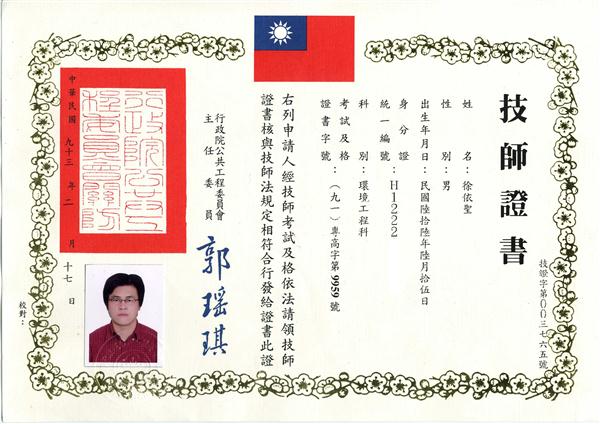 技師證書
技證字第００三七六五號
姓　　名：徐依聖
性　　別：男
出生年月日：民國陸拾陸年陸月拾五日
身分證
統一編號：H1222
科　　別：環境工程科
考試及格
證書字號：（九一）專高字第9959號
右列申請人經技師考試及格依法請領技師
證書核與技師法規定相符合行發給證書此證
行政院公共工程委員會
主任委員
郭瑶琪
中華民國九十三年二月十七日
校對：